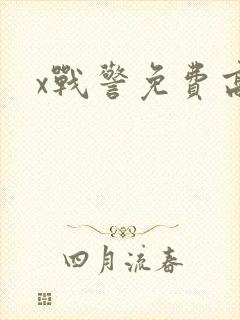 x戰警免費高
四月流春